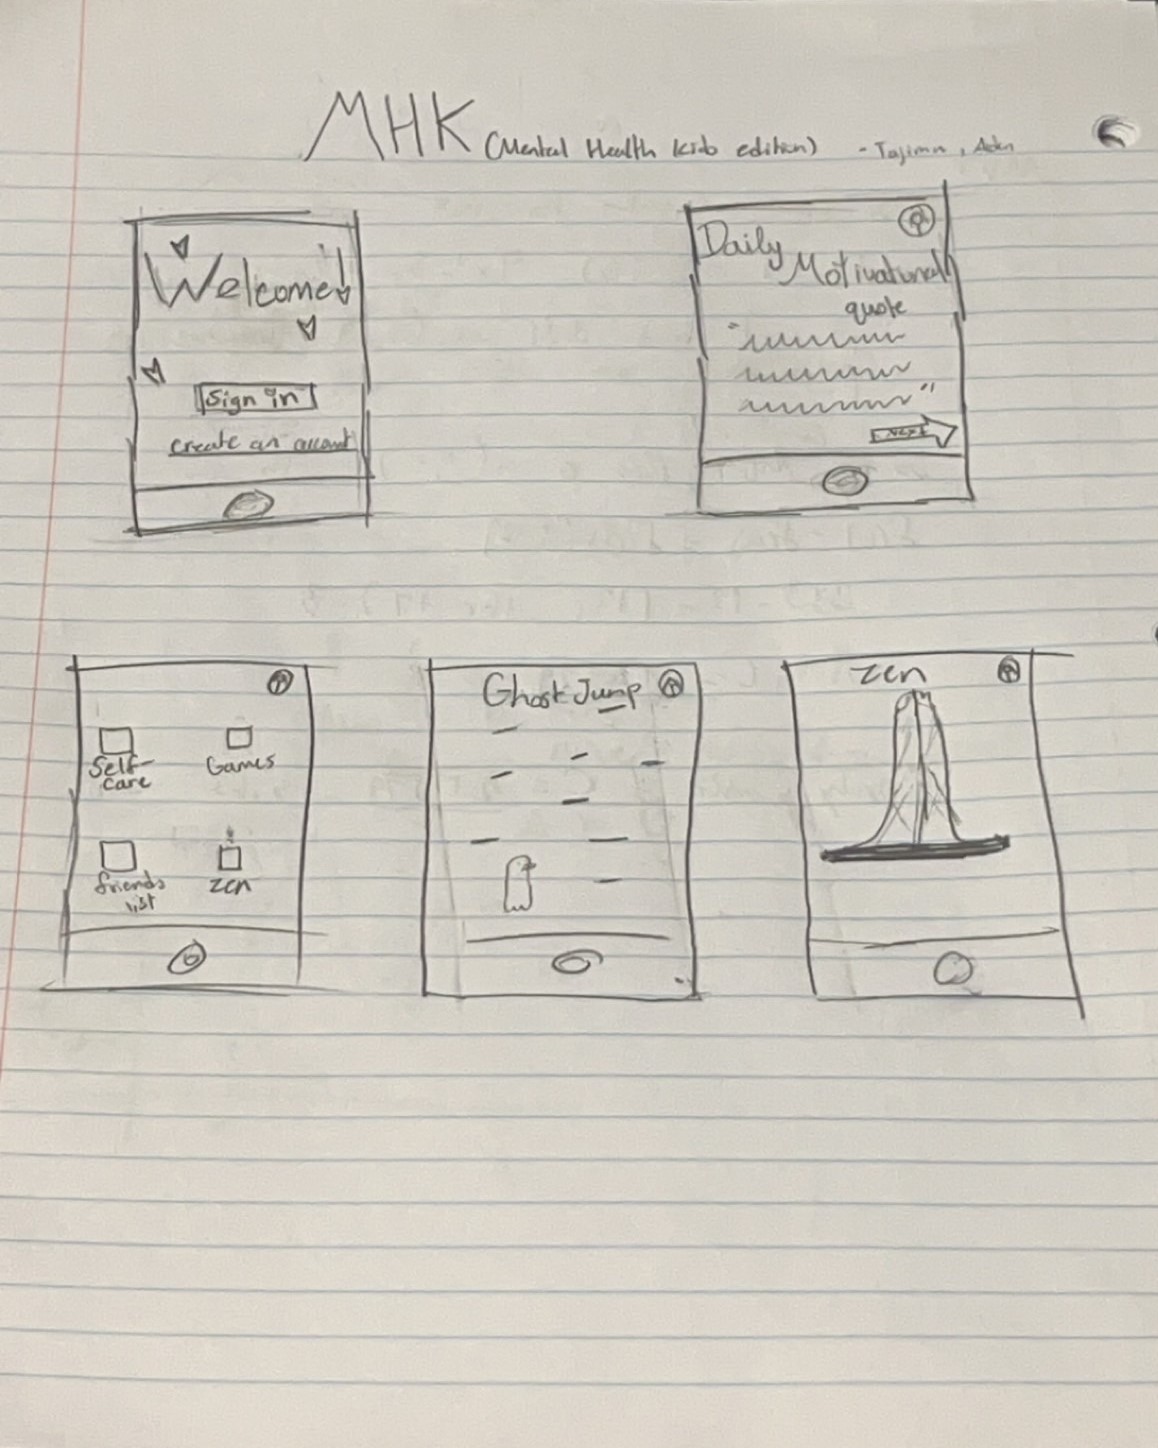 MHK (Mental Health kids edition) - Tajimn, Aden
Welcome!
Sign in
create an account
Daily
Motivational
quote
"
"
NEXT
Self-
care
Games
friends
list
zen
Ghost Jump
zen